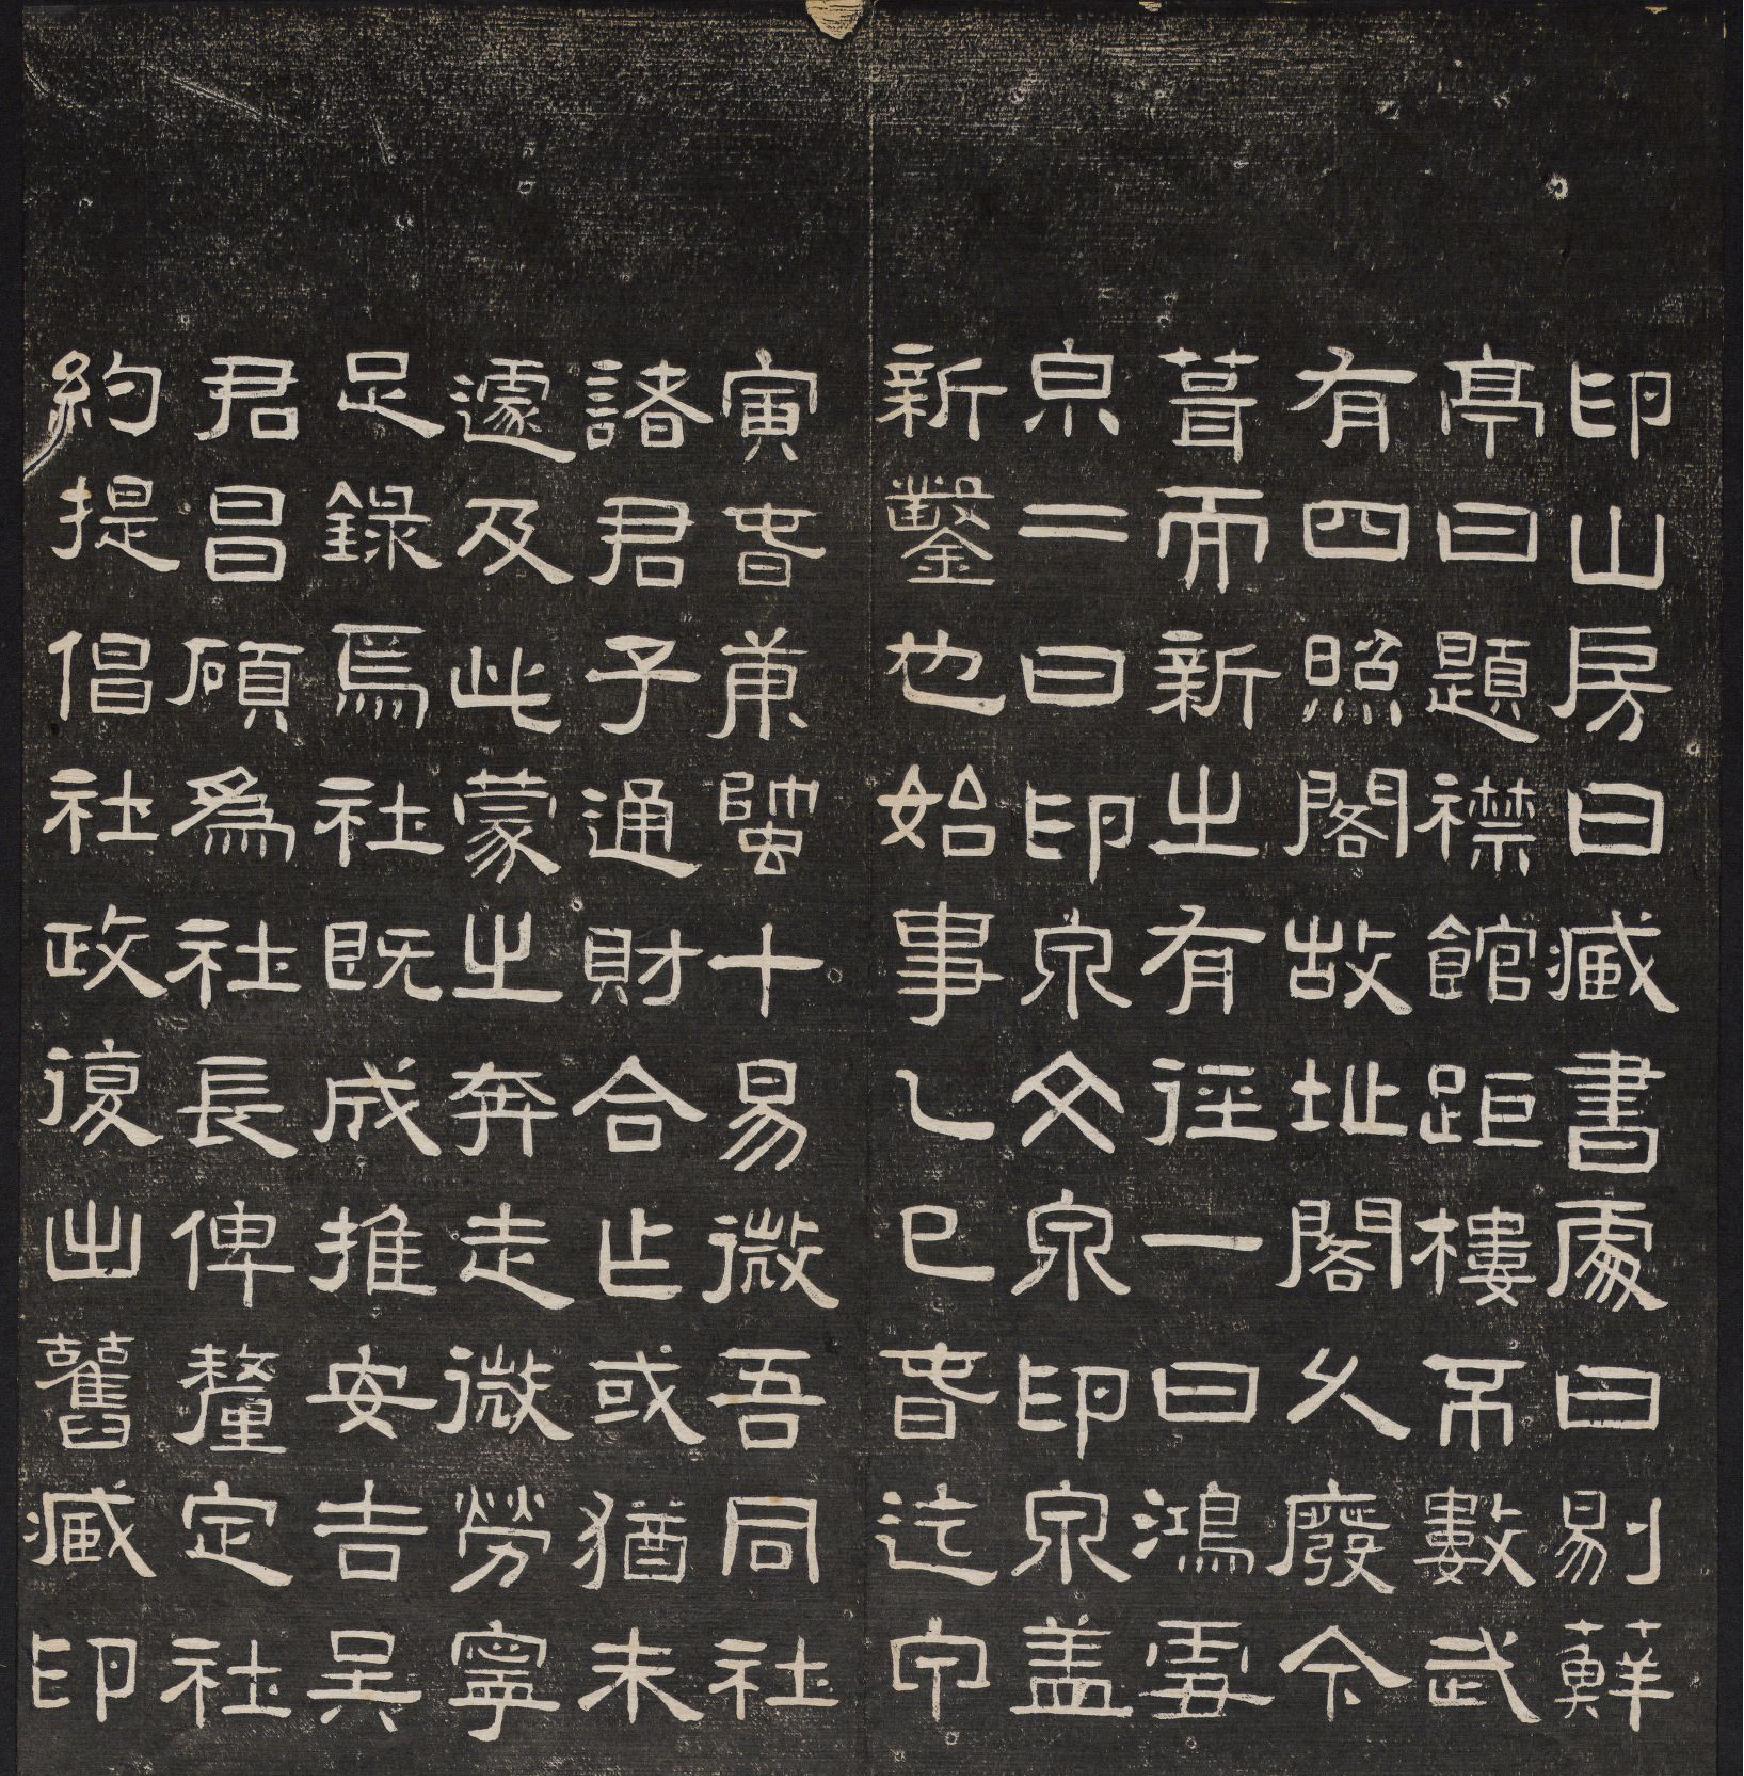 印山房曰臧書處曰剔蘚
亭曰題襟館距樓不數武
有四照閣故址閣久廢今
葺而新之有徑一曰鴻雪
泉二曰印泉文泉印泉盖
新鑿也始事乙巳旾迄甲
寅旾十易微吾同社
諸君子通財合乍或猶未
遽及此蒙之奔走微勞寧
足錄焉社既成推安吉吳
君昌碩為社長俾釐定社
約提倡社政復出舊臧印